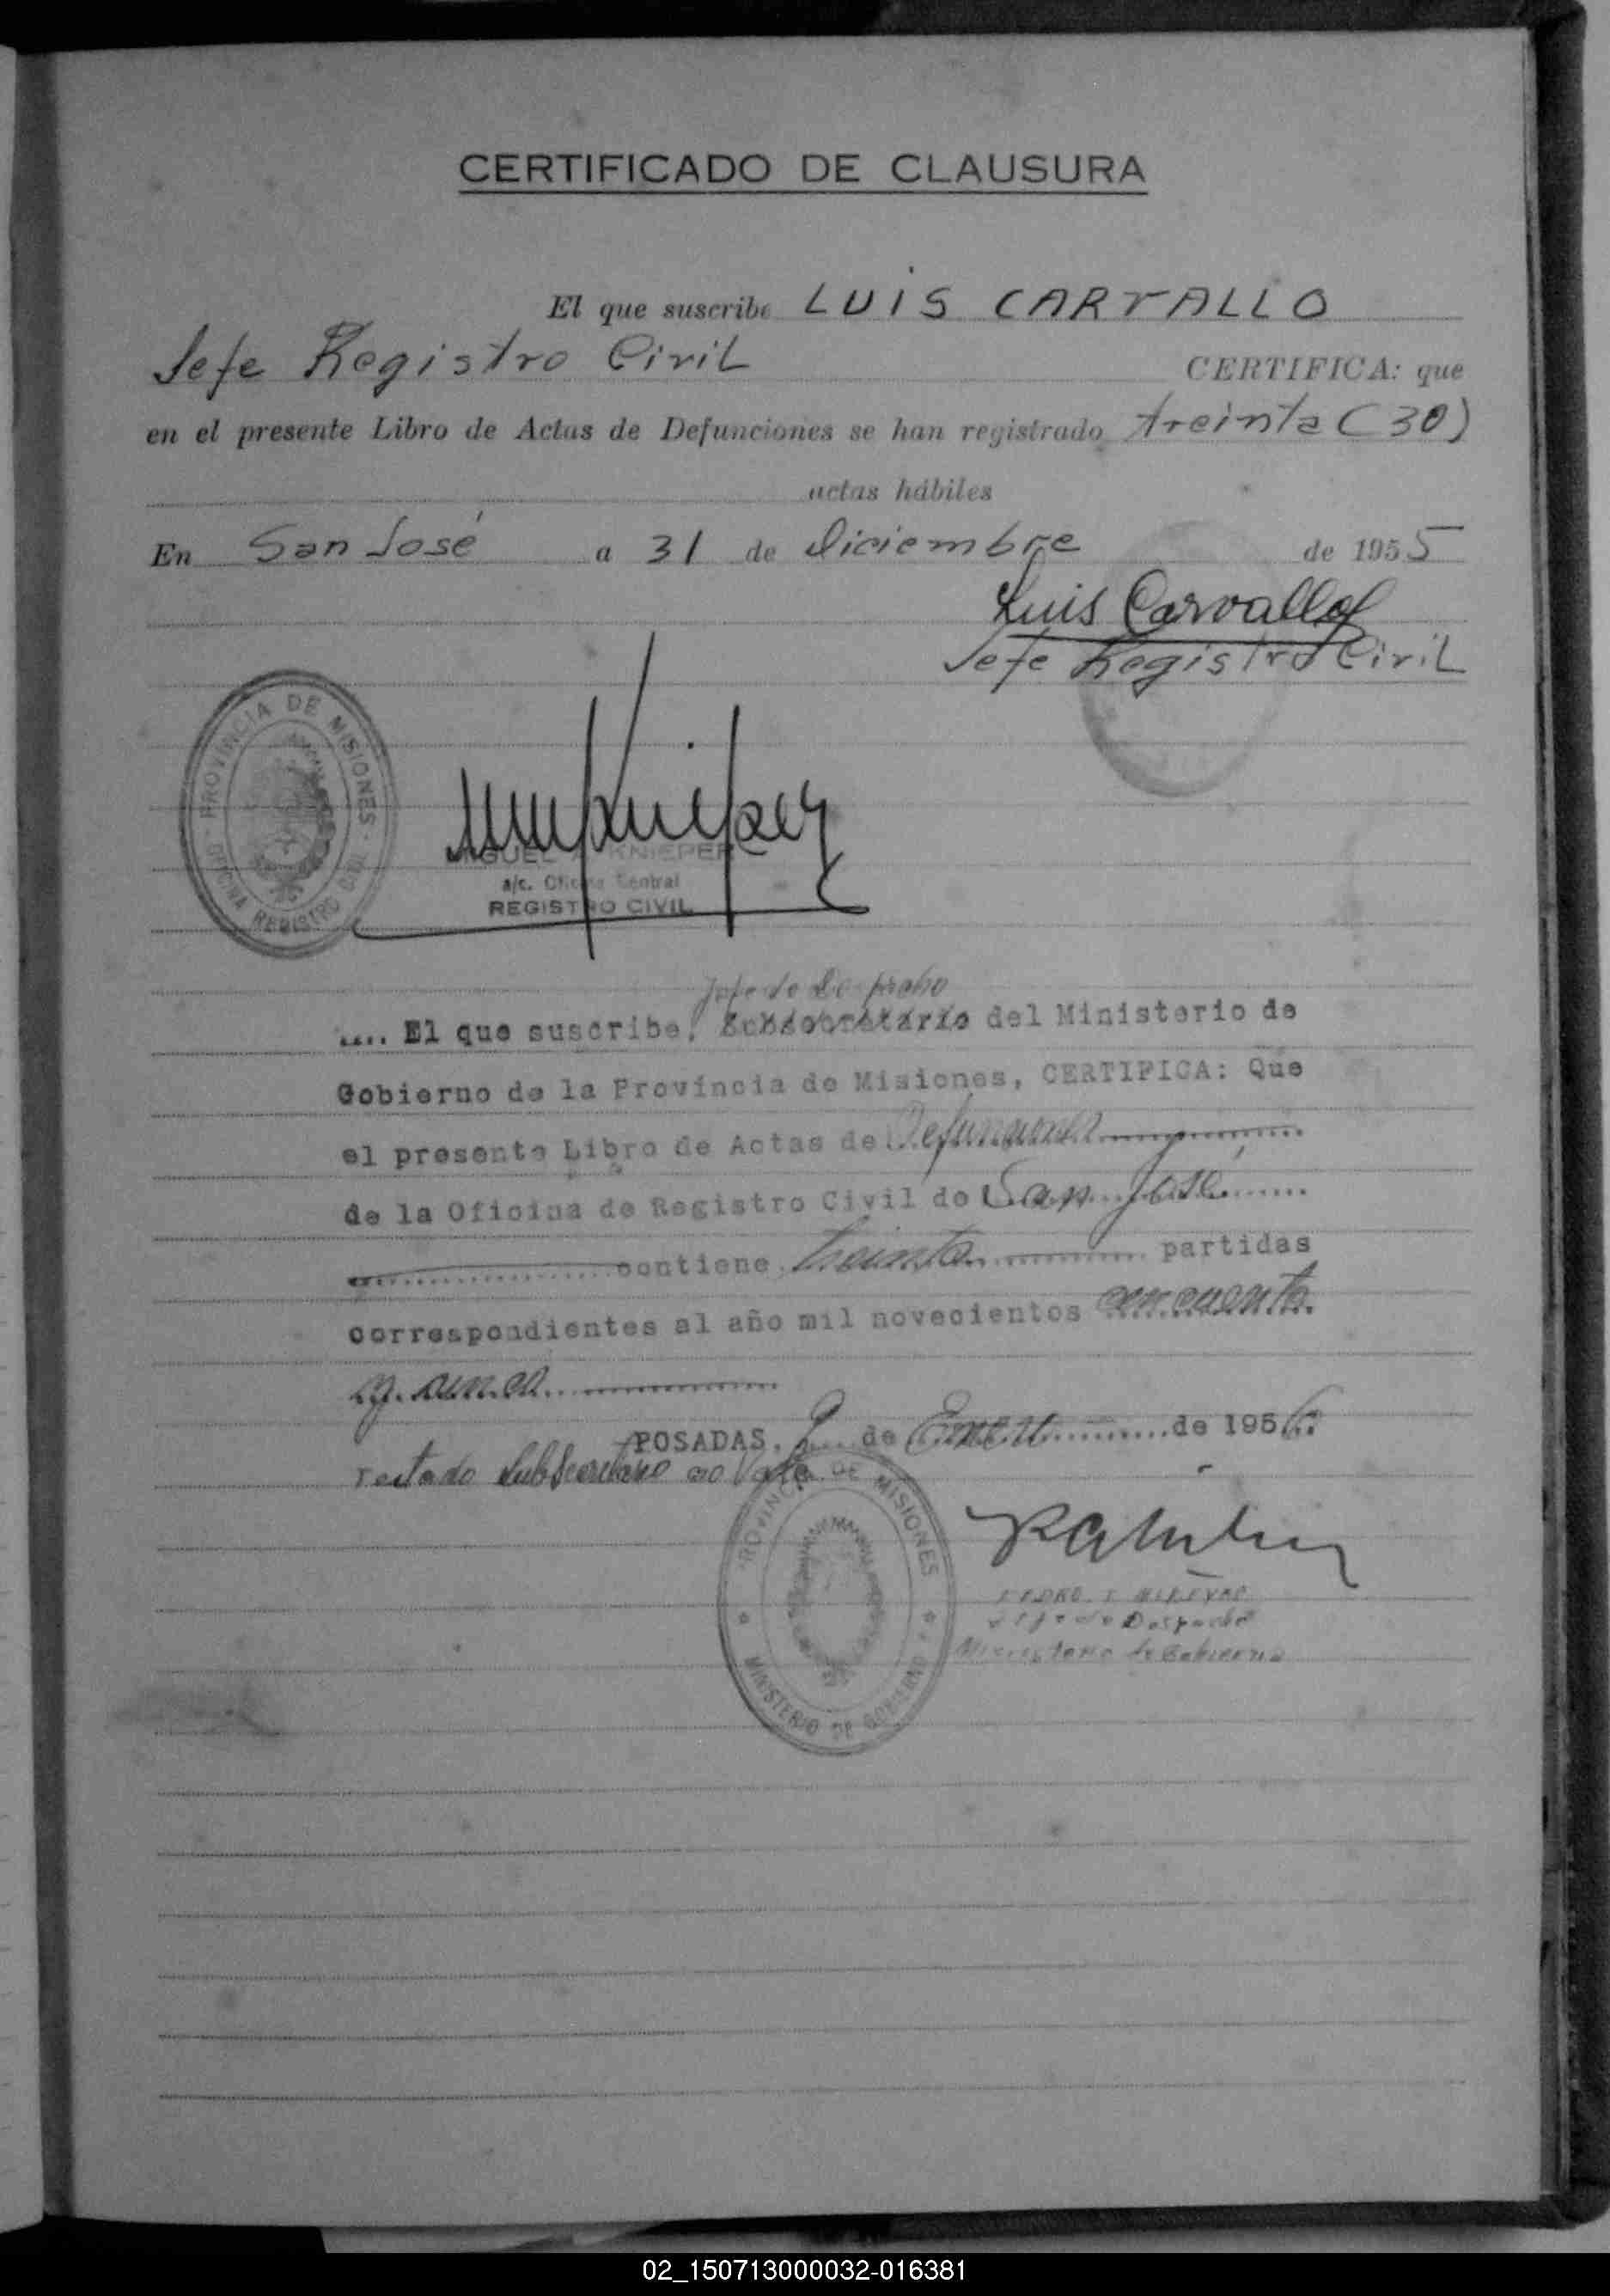 CERTIFICADO DE CLAUSURA
El que suscribe LUIS CARVALLO
Jefe Registro Civil CERTIFICA: que
en el presente Libro de Actas de Defunciones se han registrado treinta (30)
actas hábiles
En San José a 31 de Diciembre de 1955
Luis Carvallo
Jefe Registro Civil
PROVINCIA DE MISIONES
OFICINA REGISTRO CIVIL
MIGUEL KNIEPER
a/c. Oficina Central
REGISTRO CIVIL
Jefe de Despacho
.... El que suscribe, Subsecretario del Ministerio de
Gobierno de la Provincia de Misiones, CERTIFICA: Que
el presente Libro de Actas de Defunciones
de la Oficina de Registro Civil de San José
contiene treinta partidas
correspondientes al año mil novecientos cincuenta
y cinco
POSADAS, 9 de Enero de 1956
Testado Subsecretario no Vale
PROVINCIA DE MISIONES
MINISTERIO DE GOBIERNO
PEDRO
Jefe de Despacho
Ministerio de Gobierno
02_150713000032-016381